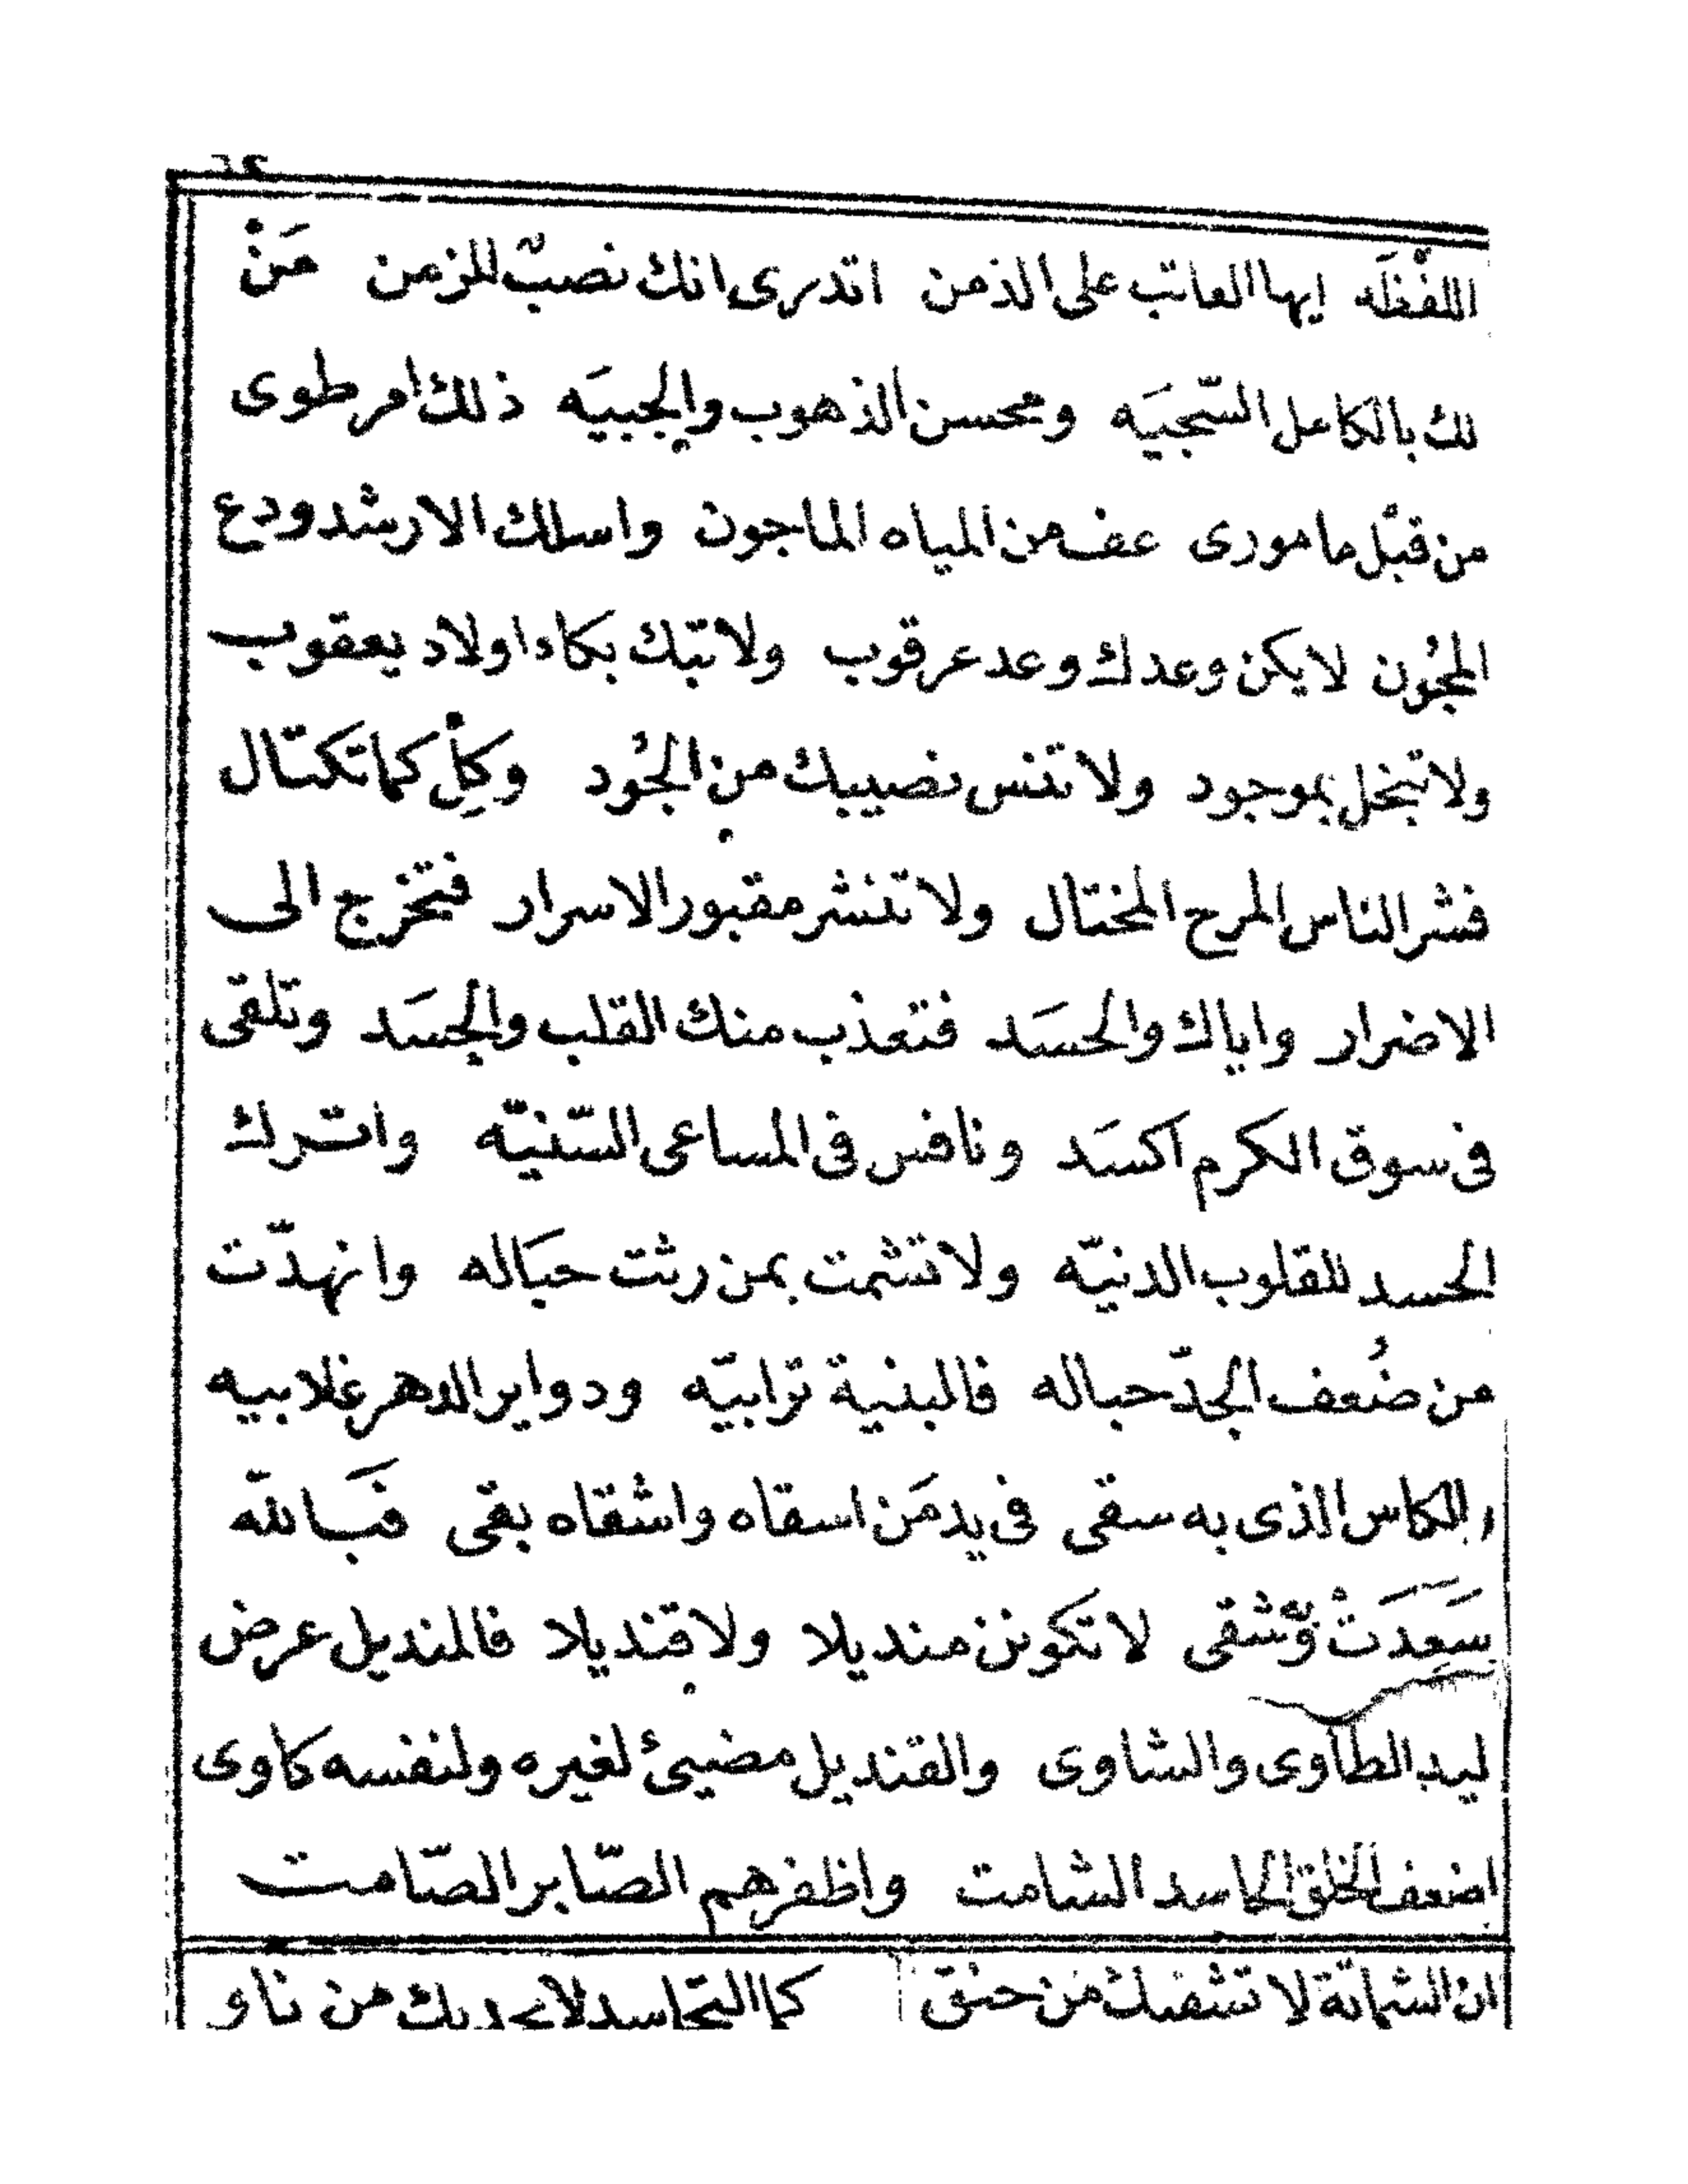 اللفْظَه ايها العاتب على الذمن اتدرى انك نصبٌ للمزمن مَنْ
لك بالكامل السّجيَه ومحسن الذهوب والجيبَه ذلك امر طوى
من قبْل ما مورى عف من المياه الماجون واسلك الارشد ودع
المجُون لا يكن وعدك وعد عرقوب ولا تبّك بكاء اولاد يعقوب
ولا تبخل بموجود ولا تنس نصيبك من الجُود وكِلْ كما تكتال
فشر الناس المرح المختال ولا تنشر مقبور الاسرار فتخرج الى
الاضرار واياك والحسَد فتعذب منك القلب والجسَد وتلقى
فى سوق الكرم اكسَد ونافس فى المساعى السّنيّه واترك
الحسد للقلوب الدنيّه ولا تشمت بمن رثت حبَاله وانهدّت
من ضُعف الجدّ حباله فالبنية ترابيّه ودواير الدهر غلابيه
والكاس الذى به سقى فى يد مَن اسقاه واشقاه بقى فَبالله
سَعِدَتْ وَشقى لا تكونن منديلا ولا قنديلا فالمنديل عرض
ليد الطاوى والشاوى والقنديل مضيئ لغيره ولنفسه كاوى
اضعف الخلق الحاسد الشامت واظفرهم الصّابر الصّامت
ان الشماتة لا تشفيك من حنق كما التحاسد لا يجديك من ناو